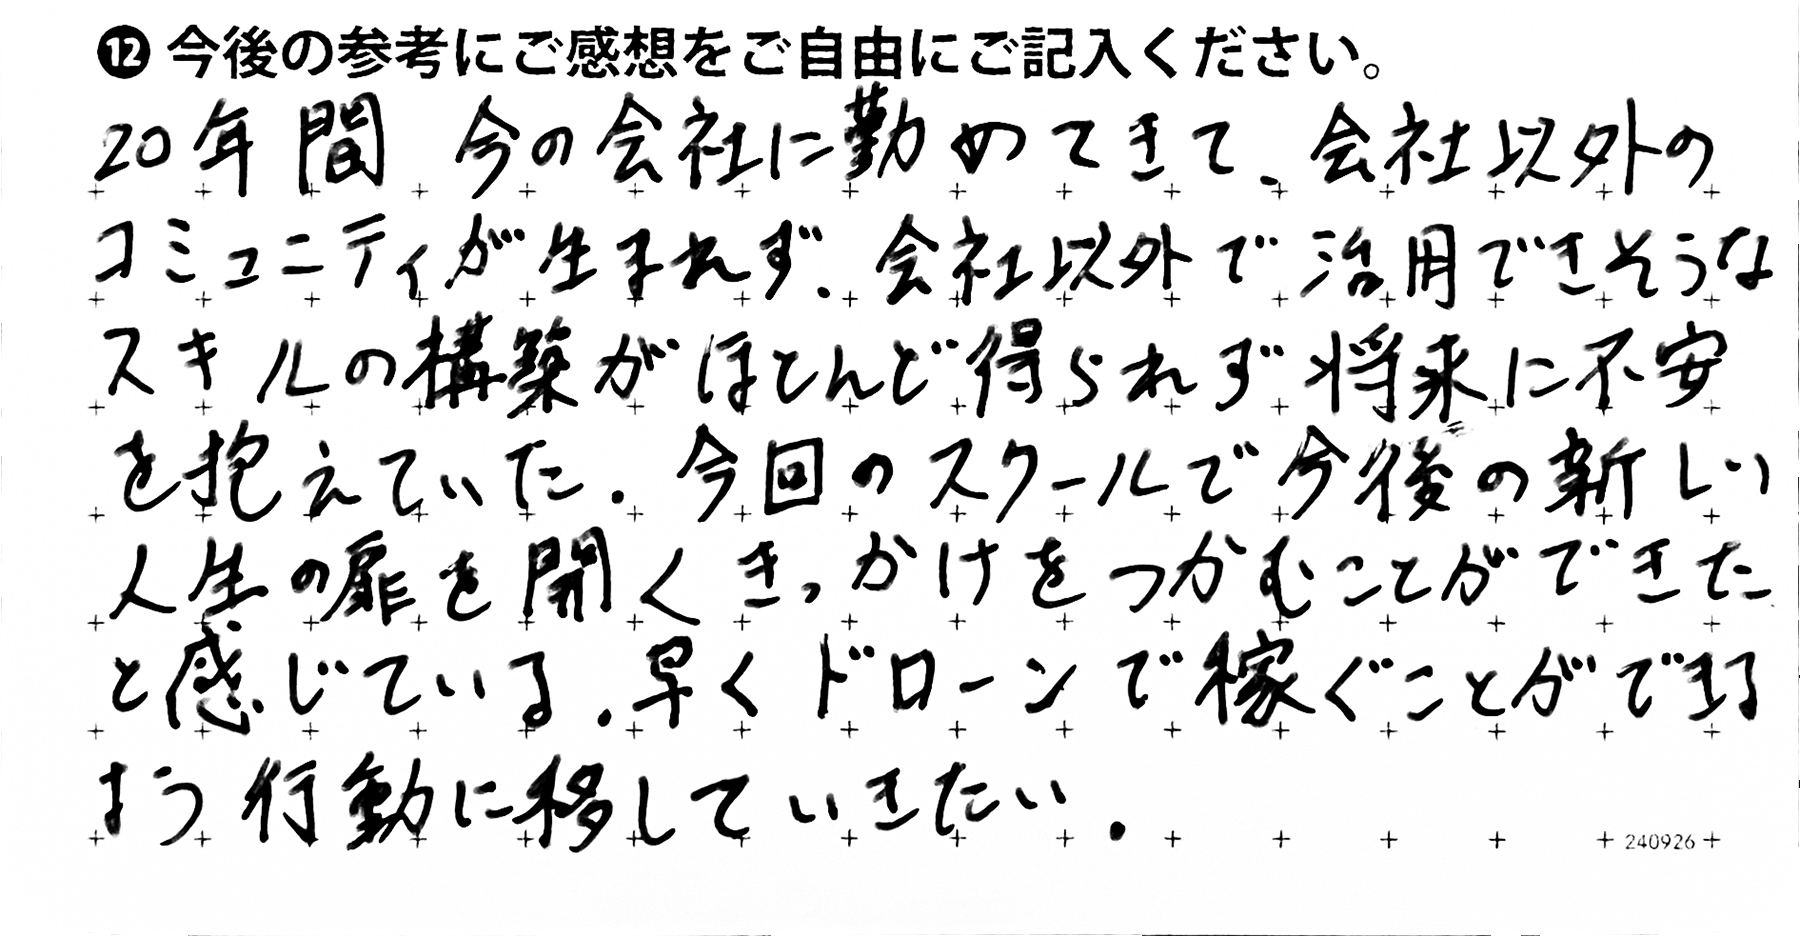 ⓬ 今後の参考にご感想をご自由にご記入ください。
20年間 今の会社に勤めてきて、会社以外の
コミュニティが生まれず、会社以外で活用できそうな
スキルの構築がほとんど得られず将来に不安
を抱えていた。今回のスクールで今後の新しい
人生の扉を開くきっかけをつかむことができた
と感じている。早くドローンで稼ぐことができる
よう行動に移していきたい。
240926